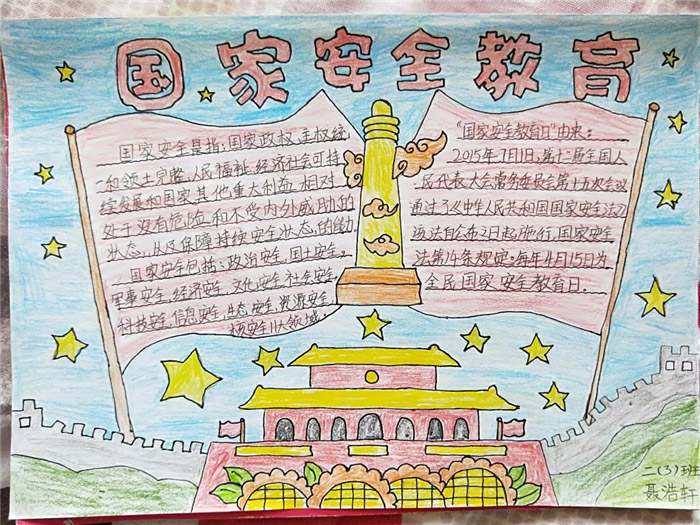 国家安全教育
国家安全是指:国家政权、主权统
一和领土完整、人民福祉、经济社会可持
续发展和国家其他重大利益相对
处于没有危险和不受内外威胁的
状态,以及保障持续安全状态的能力
国家安全包括:政治安全、国土安全、
军事安全、经济安全、文化安全、社会安全、
科技安全、信息安全、生态安全、资源安全、
核安全11大领域。
“国家安全教育日”由来:
2015年7月1日,第十二届全国人
民代表大会常务委员会第十五次会议
通过了《中华人民共和国国家安全法》
该法自公布之日起施行,国家安全
法第14条规定:每年4月15日为
全民国家安全教育日.
二(3)班
聂浩轩